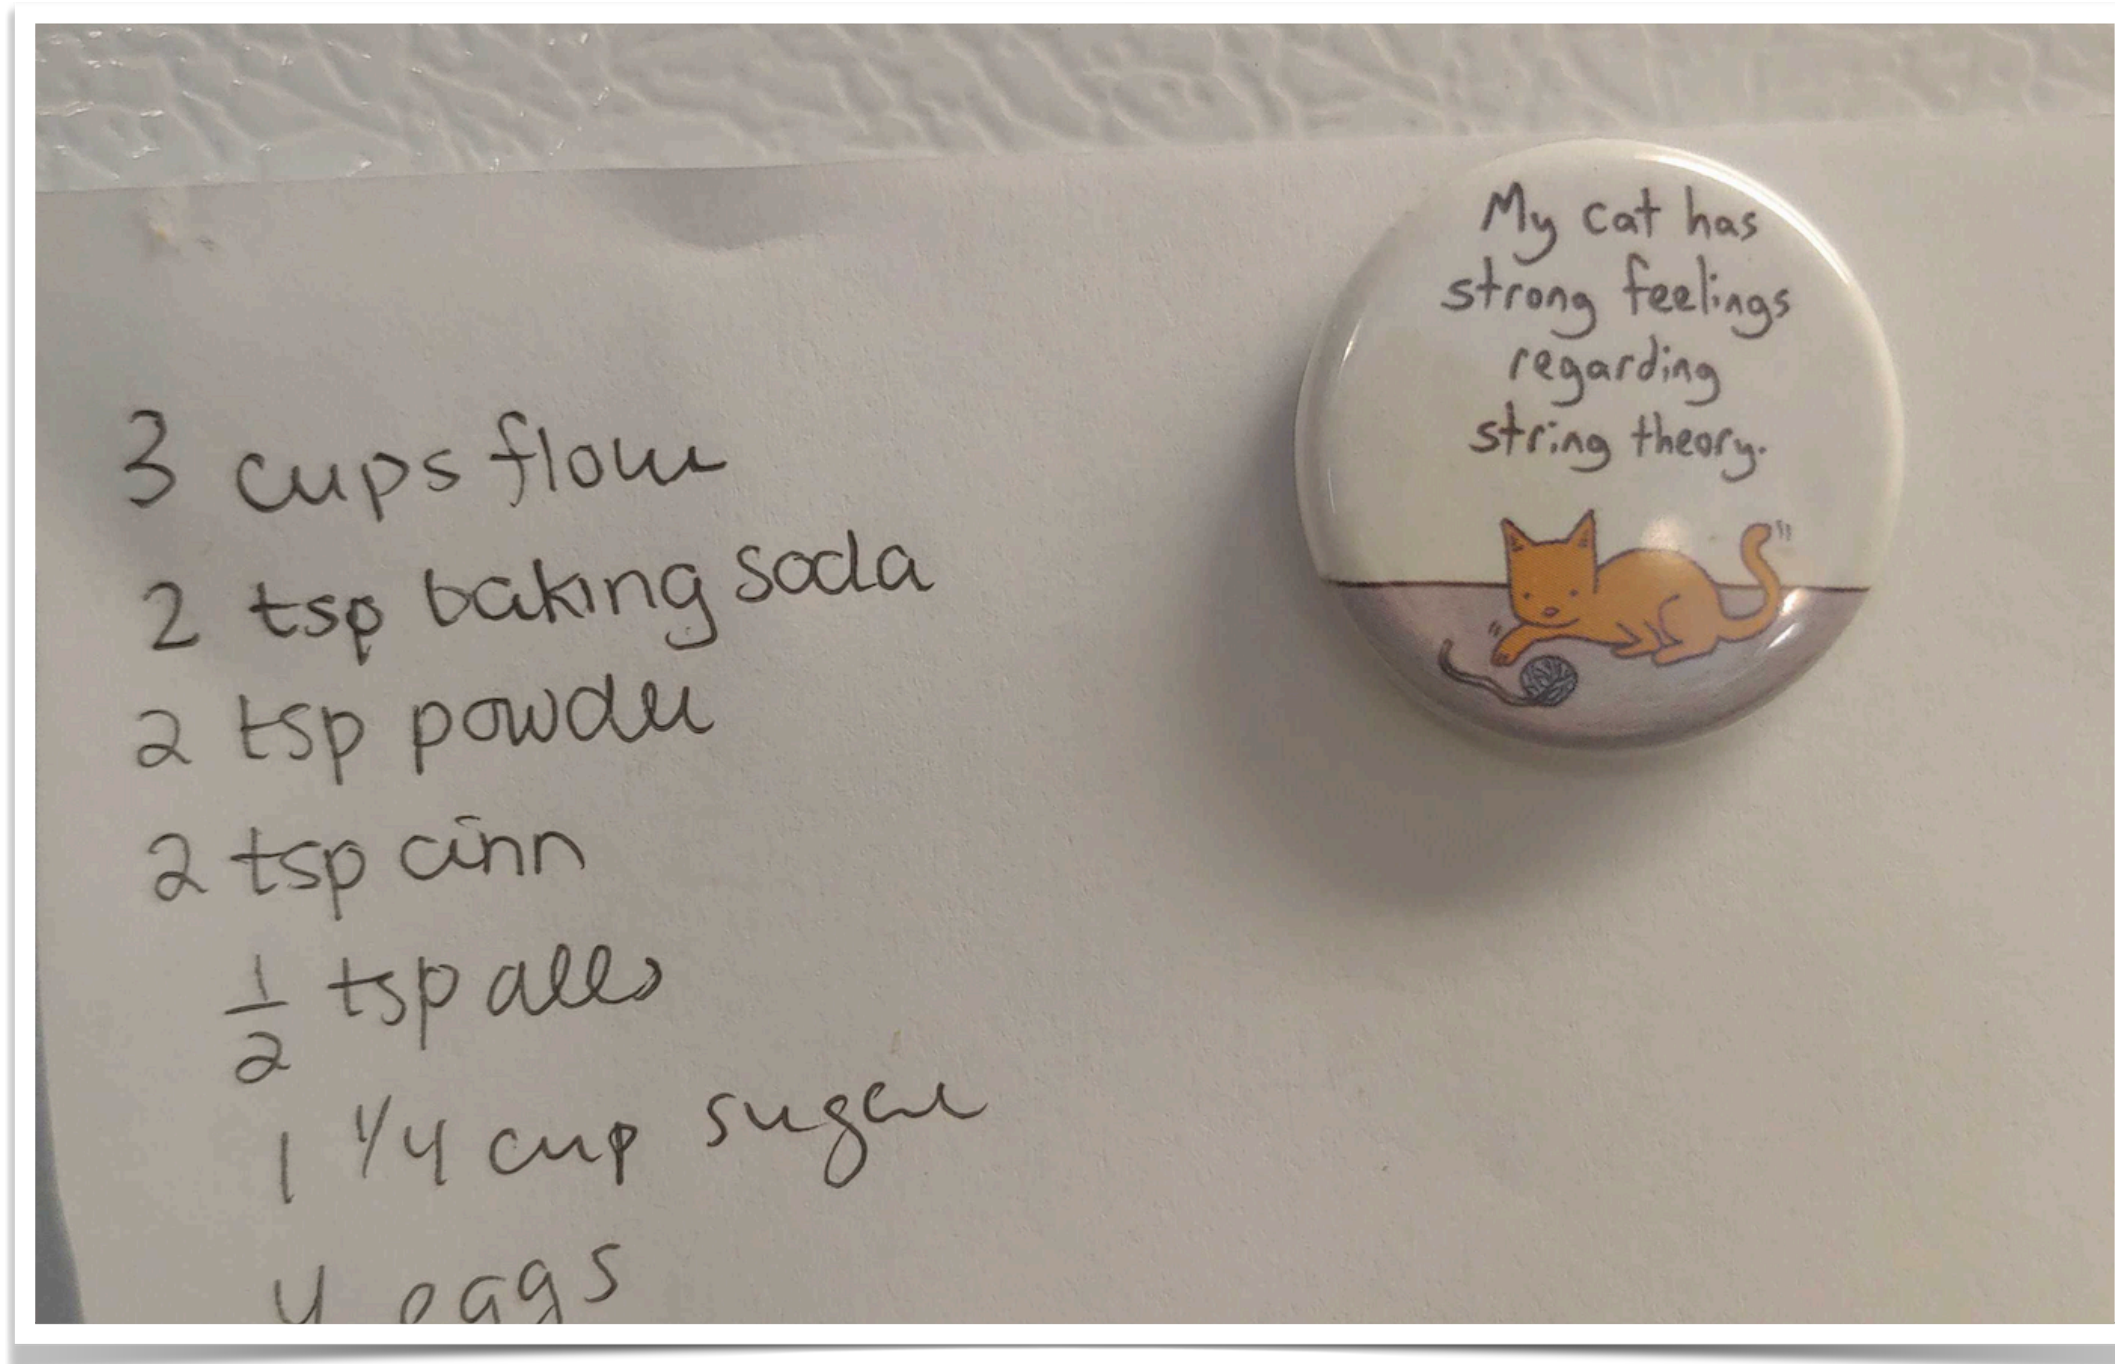 3 cups flour
2 tsp baking soda
2 tsp powder
2 tsp cinn
1/2 tsp alls
1 1/4 cup sugar
4 eggs
My cat has
strong feelings
regarding
string theory.